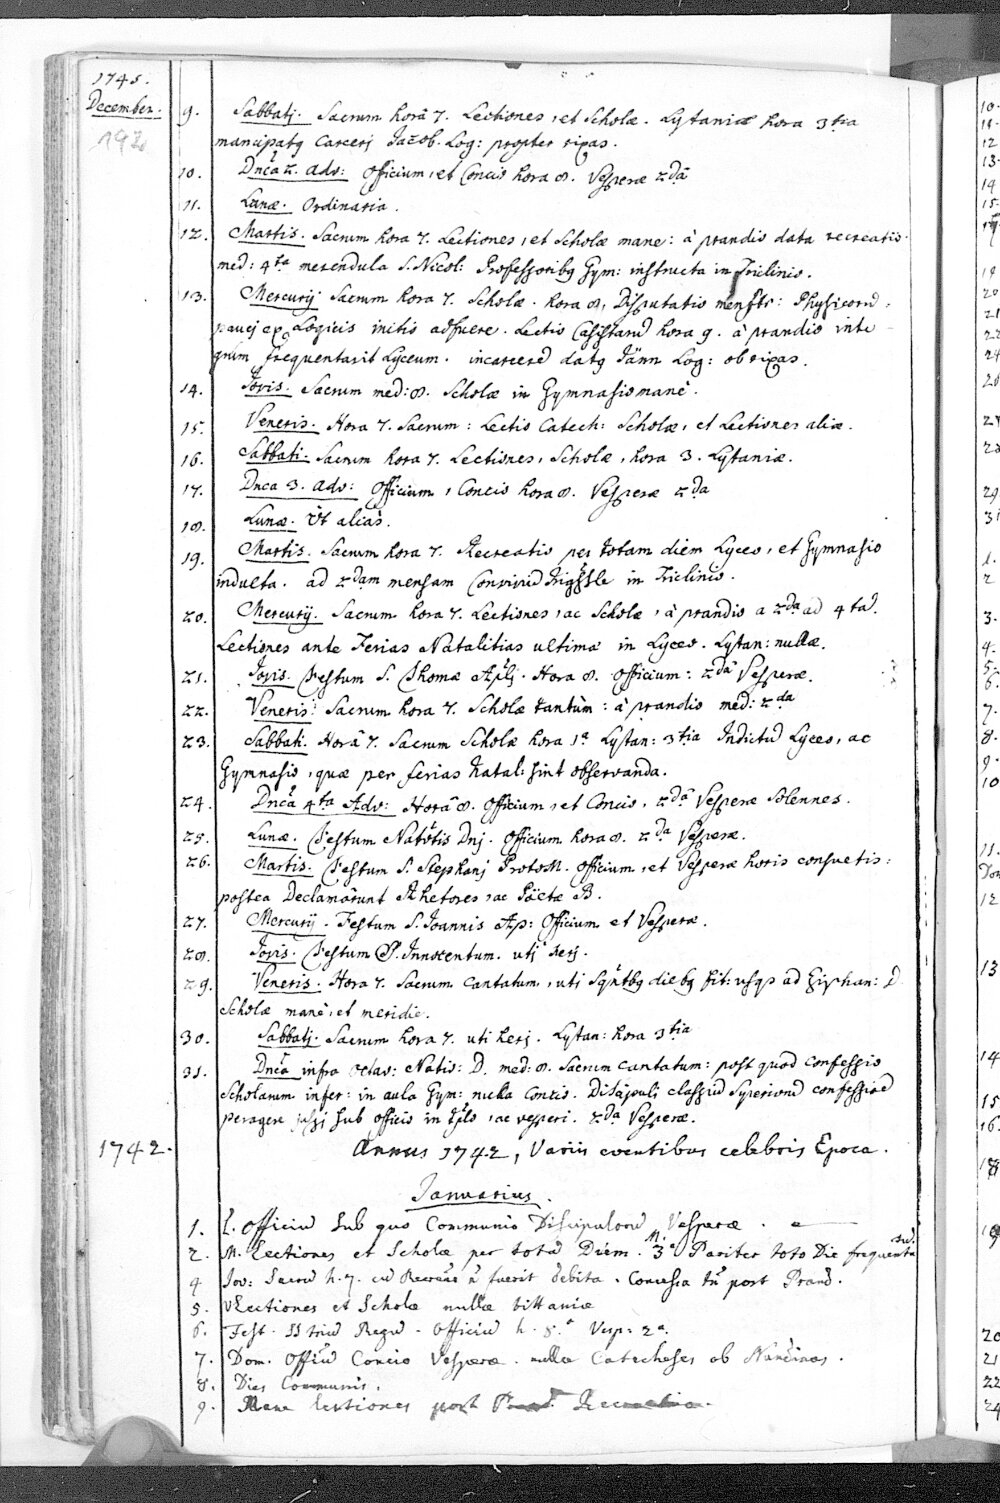 1745.
December.
192
9. Sabbatj. Sacrum horâ 7. Lectiones, et Scholæ. Lytaniæ hora 3tia
mancipatq carcerj Jacob. Log: propter rixas.
10. Dnca 2. Adv: Officium, et Concio hora 8. Vesperæ 2dâ
11. Lunæ. Ordinaria.
12. Martis. Sacrum hora 7. Lectiones, et Scholæ mane: à prandio data recreatio
med: 4ta merendula S. Nicol: Professoribq Gym: instructa in Triclinio.
13. Mercurij Sacrum hora 7. Scholæ. hora 8, Disputatio menstr: Physicorū,
paucj ex Logicis initio adfuere. Lectio Casistarū hora 9. à prandio inte-
grum frequentarūt Lyceum. incarcerē datq Log: ob rixas.
14. Jovis. Sacrum med: 8. Scholæ in Gymnasio manè.
15. Veneris. Hora 7. Sacrum: Lectio Catech: Scholæ, et Lectiones aliæ.
16. Sabbati. Sacrum hora 7. Lectiones, Scholæ, hora 3. Lytaniæ.
17. Dnca 3. Adv: Officium, Concio hora 8. Vesperæ 2da
18. Lunæ. Ut aliàs.
19. Martis. Sacrum hora 7. Recreatio per totam diem Lyceo, et Gymnasio
indulta. ad 2dam mensam Conviviū in Triclinio.
20. Mercurij. Sacrum hora 7. Lectiones, ac Scholæ, à prandio a 2da ad 4tā.
Lectiones ante Ferias Natalitias ultimæ in Lyceo. Lytan: nullæ.
21. Jovis. Festum S. Thomæ Aplj. Hora 8. Officium: 2dâ Vesperæ.
22. Veneris. Sacrum hora 7. Scholæ tantùm: à prandio med: 2da
23. Sabbati. Horâ 7. Sacrum Scholæ hora 1a Lytan: 3tia Indictū Lyceo, ac
Gymnasio, quæ per ferias Natal: sint observanda.
24. Dnca 4ta Adv: Horâ 8. Officium, et Concio, 2dâ Vesperæ Solennes.
25. Lunæ. Festum Natãtis Dnj. Officium hora 8. 2da Vesperæ.
26. Martis. Festum S. Stephanj ProtoM. Officium, et Vesperæ horis consuetis:
postea Declamârunt Rhetores, ac Poëtæ B.
27. Mercurij. Festum S. Joannis Ap: Officium et Vesperæ.
28. Jovis. Festum SS. Innocentum. utj herj.
29. Veneris. Hora 7. Sacrum cantatum, uti Sqntbq diebq fit: usqp ad Epiphan: D.
Scholæ manè, et meridie.
30. Sabbatj. Sacrum hora 7. uti herj. Lytan: hora 3tia
31. Dnca infra octav: Natis: D. med: 8. Sacrum cantatum: post quod confessio
Scholarum infer: in aula Gym: nulla Concio. Discipuli classiū Superiorū confessionē
peragere jussj sub officio in Tplo, ac vesperi. 2da Vesperæ.
1742.
Annus 1742, Variis eventibus celebris Epoca.
Januarius.
1. L. Officiū sub quo Communio Discipulorū Vesperæ.
2. M. Lectiones et Scholæ per totū Diem. M. 3a Pariter toto Die frequentatū.
4 Jov: Sacrū h. 7. Recreaõ n̄ fuerit debita. Concessa tn̄ post Prand.
5. V Lectiones et Scholæ nullæ littaniæ
6. Fest. SS triū Regū. Officiū h. 8.a Vesp: 2a.
7. Dom. Offiū Concio Vesperæ. nullæ Catecheses ob Nundinas.
8. Dies Communis.
9. Mane lectiones post Prand. Recreatio.